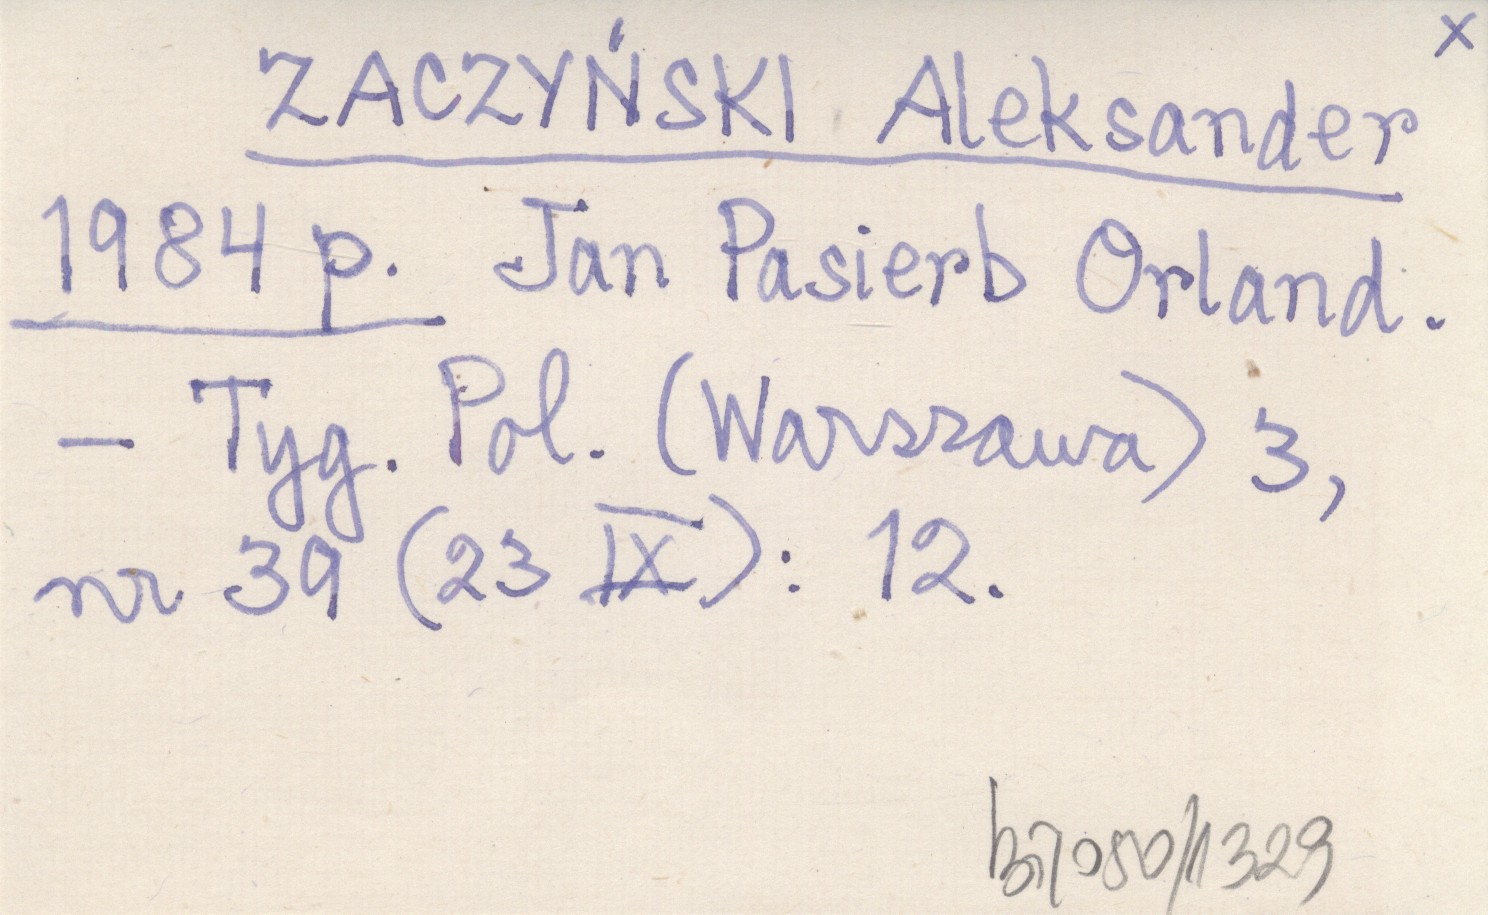 x
ZACZYŃSKI Aleksander
1984 p. Jan Pasierb Orland.
– Tyg. Pol. (Warszawa) 3,
nr 39 (23 IX): 12.